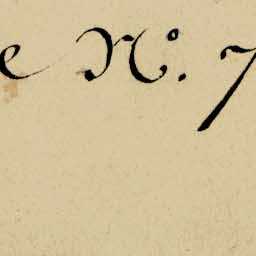 e N.º 7